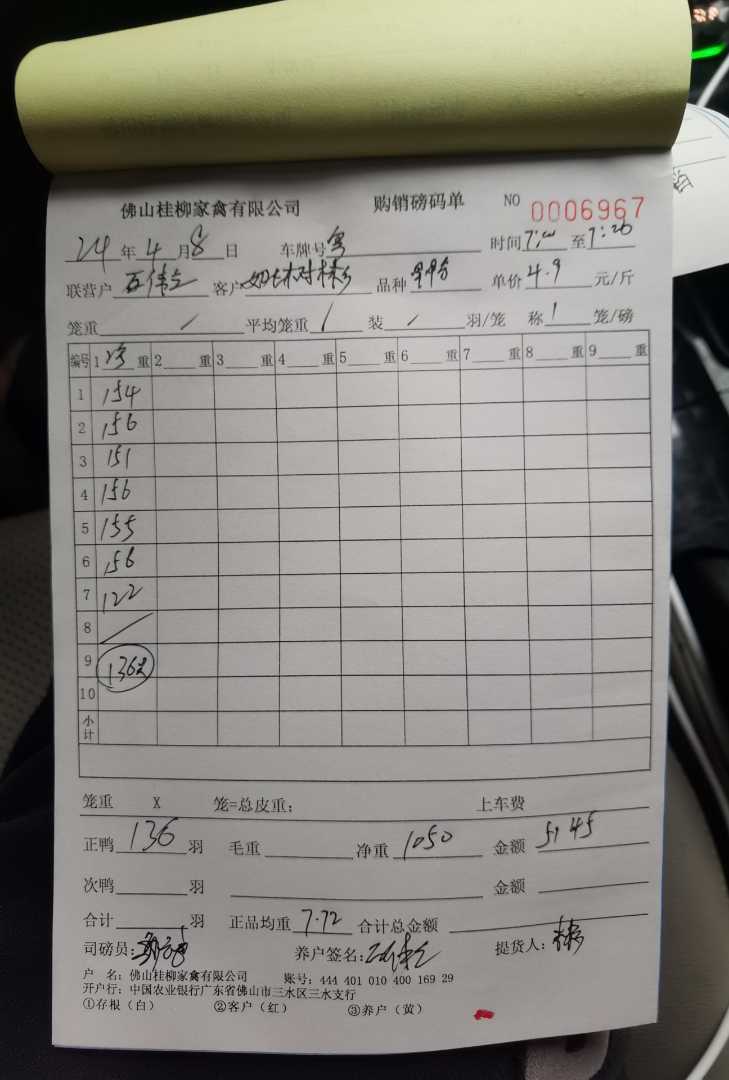 佛山桂柳家禽有限公司 购销磅码单 NO 0006967
24年4月8日 车牌号 时间7:00至7:20
联营户 客户 品种 单价4.9元/斤
笼重 / 平均笼重 / 装 / 羽/笼 称 1 笼/磅
编号 1 净 重 2 重 3 重 4 重 5 重 6 重 7 重 8 重 9 重
1 154
2 156
3 151
4 156
5 155
6 156
7 122
8 /
9 136只
10
小计
笼重 X 笼=总皮重: 上车费
正鸭 136 羽 毛重 净重 1050 金额 5145
次鸭 羽 金额
合计 羽 正品均重 7.72 合计总金额
司磅员: 养户签名: 提货人:
户 名: 佛山桂柳家禽有限公司 账号: 444 401 010 400 169 29
开户行: 中国农业银行广东省佛山市三水区三水支行
①存根(白) ②客户(红) ③养户(黄)